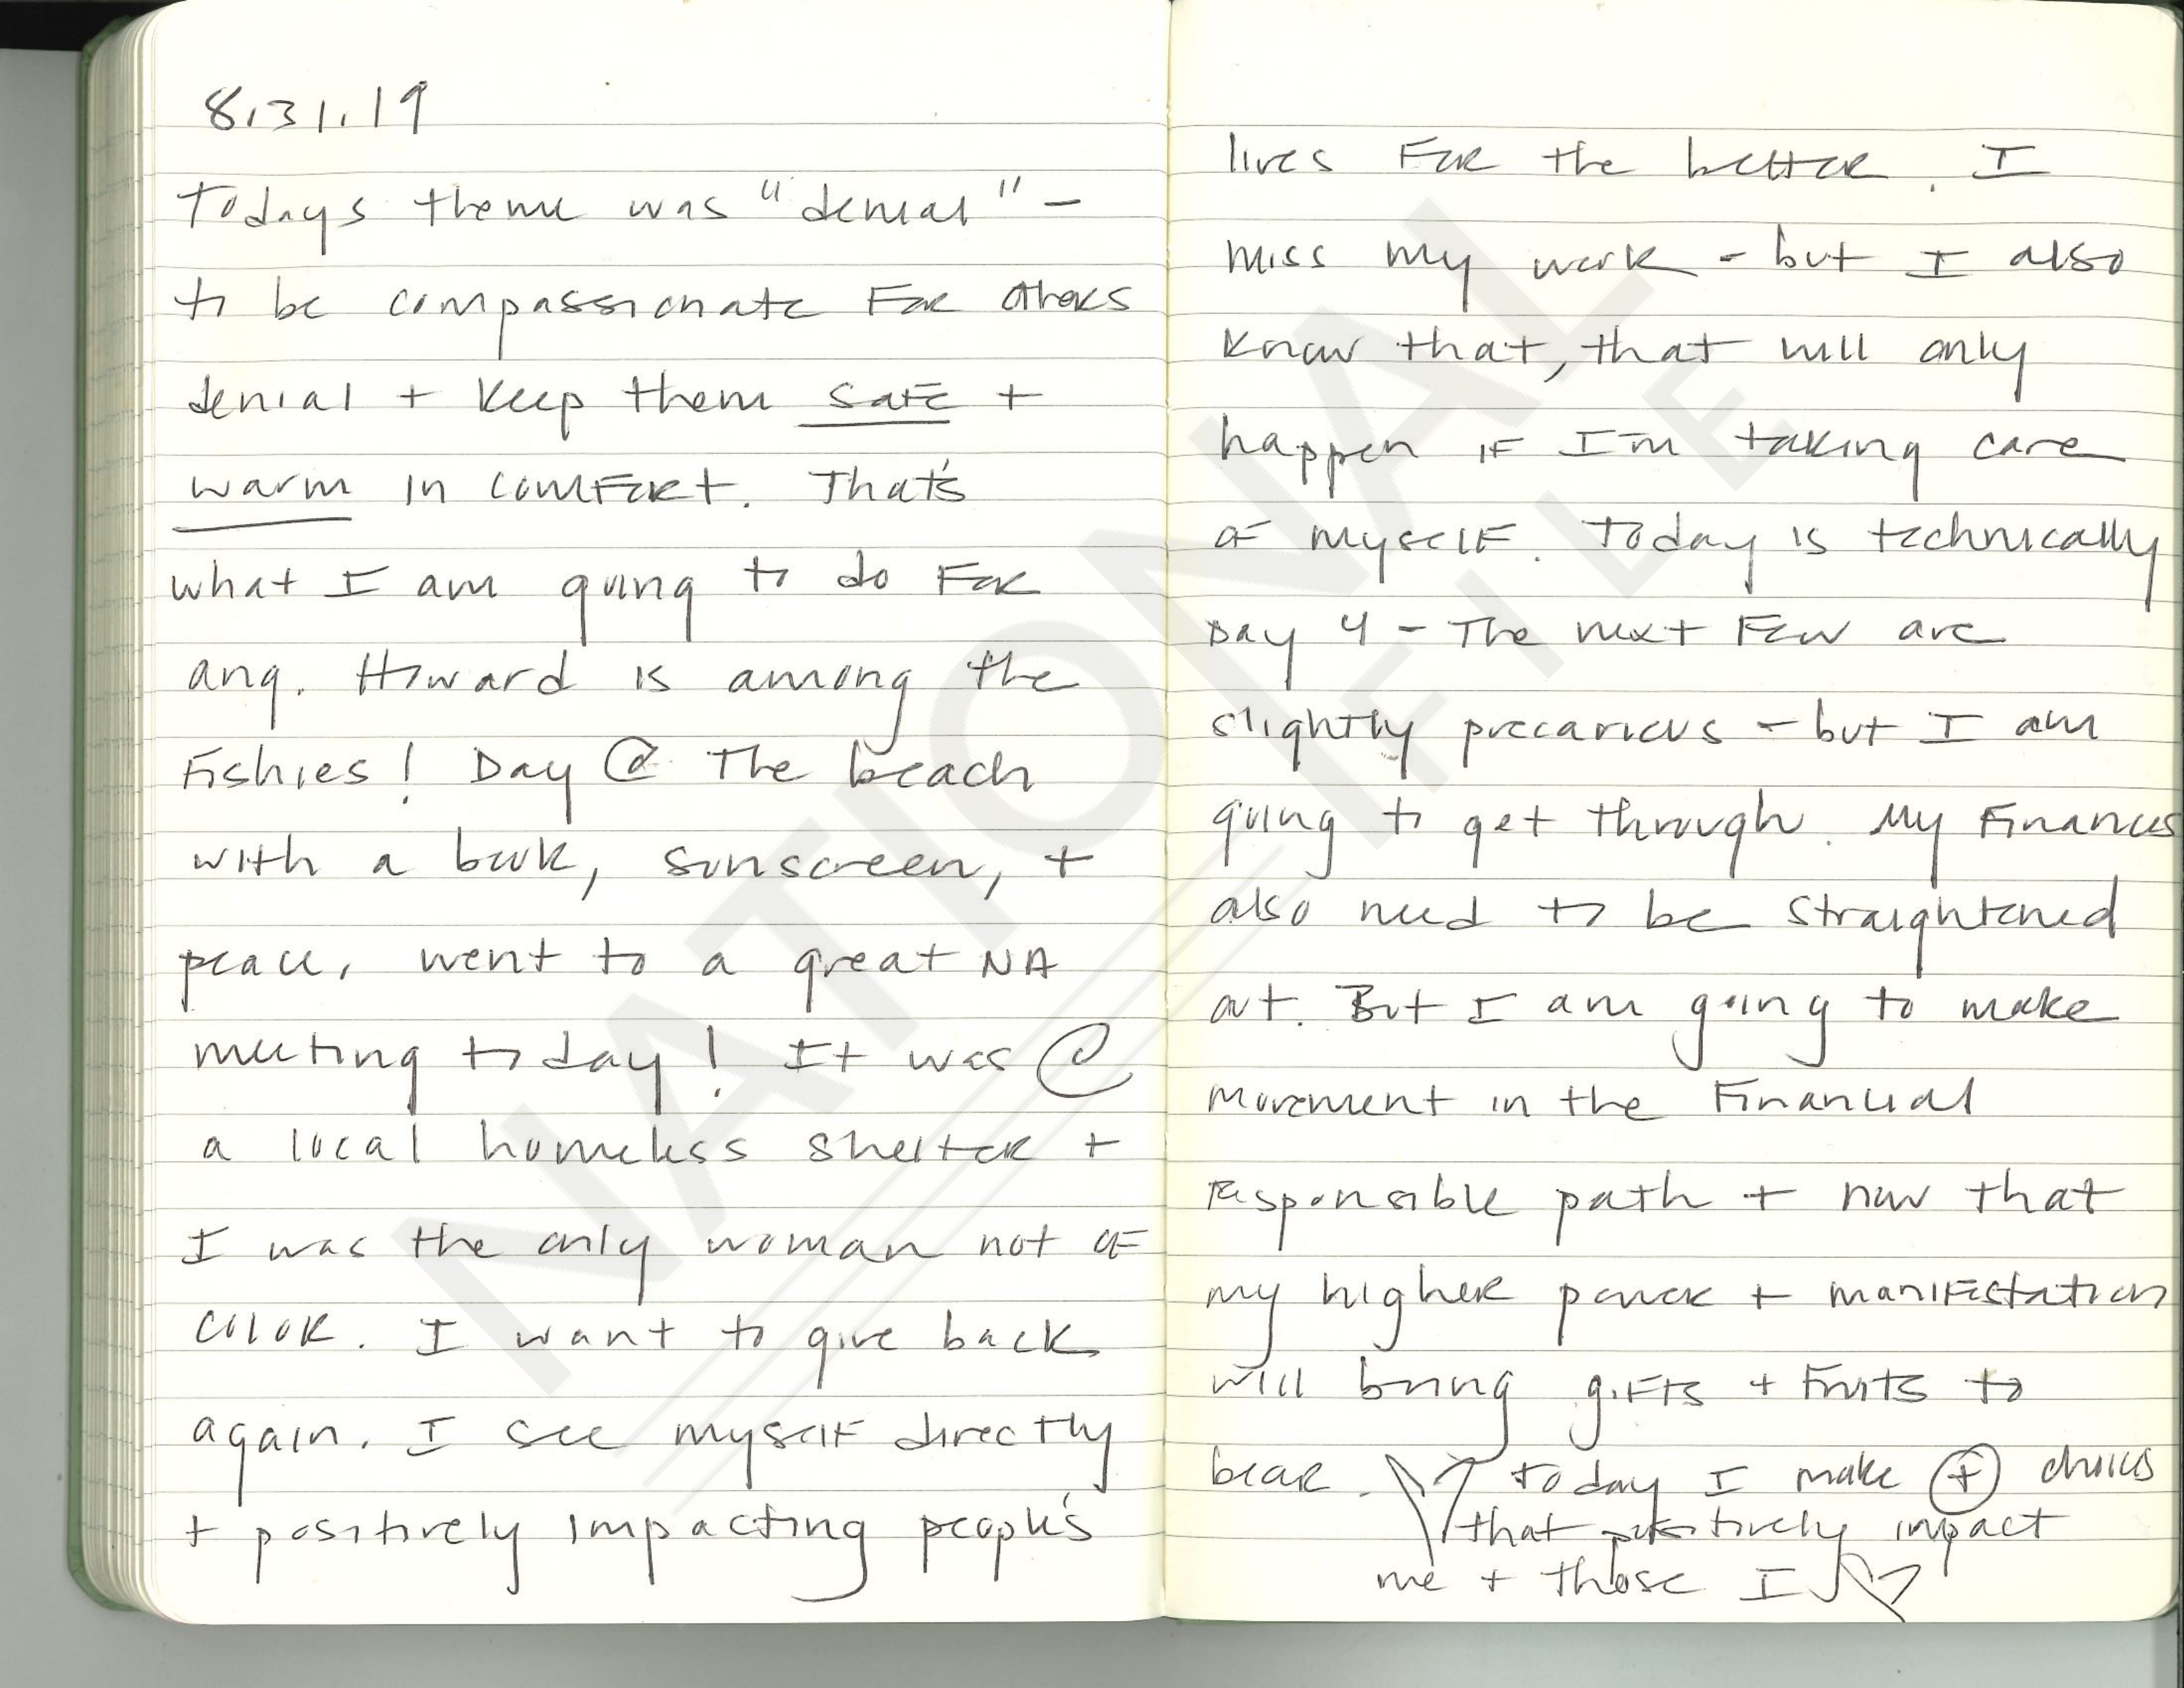 8.31.19
Todays theme was "denial" -
to be compassionate For others
denial + keep them safe +
warm in comfort. That's
what I am going to do For
ang. Howard is among the
Fishies! Day @ The beach
with a book, sunscreen, +
peace, went to a great NA
meeting today! It was @
a local homeless shelter +
I was the only woman not of
color. I want to give back
again. I see myself directly
+ positively impacting people's
lives For the better. I
miss my work - but I also
know that, that will only
happen if I'm taking care
of myself. Today is technically
Day 4 - The next Few are
slightly precarious - but I am
going to get through. My Finances
also need to be straightened
out. But I am going to make
movement in the Financial
responsible path + now that
my higher power + manifestation
will bring gifts + Fruits to
bear. Today I make + choices
that positively impact
me + those I
NATIONAL
FILE